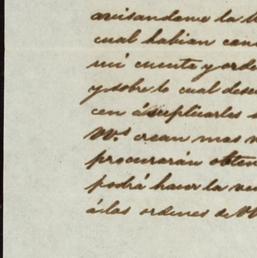 avisandome la
cual habian con
mi cuenta y orde
y sobre lo cual dese
cen á suplicarles
Vs. crean mas
procurarán obten
podrá hacer la ve
á las ordenes de V